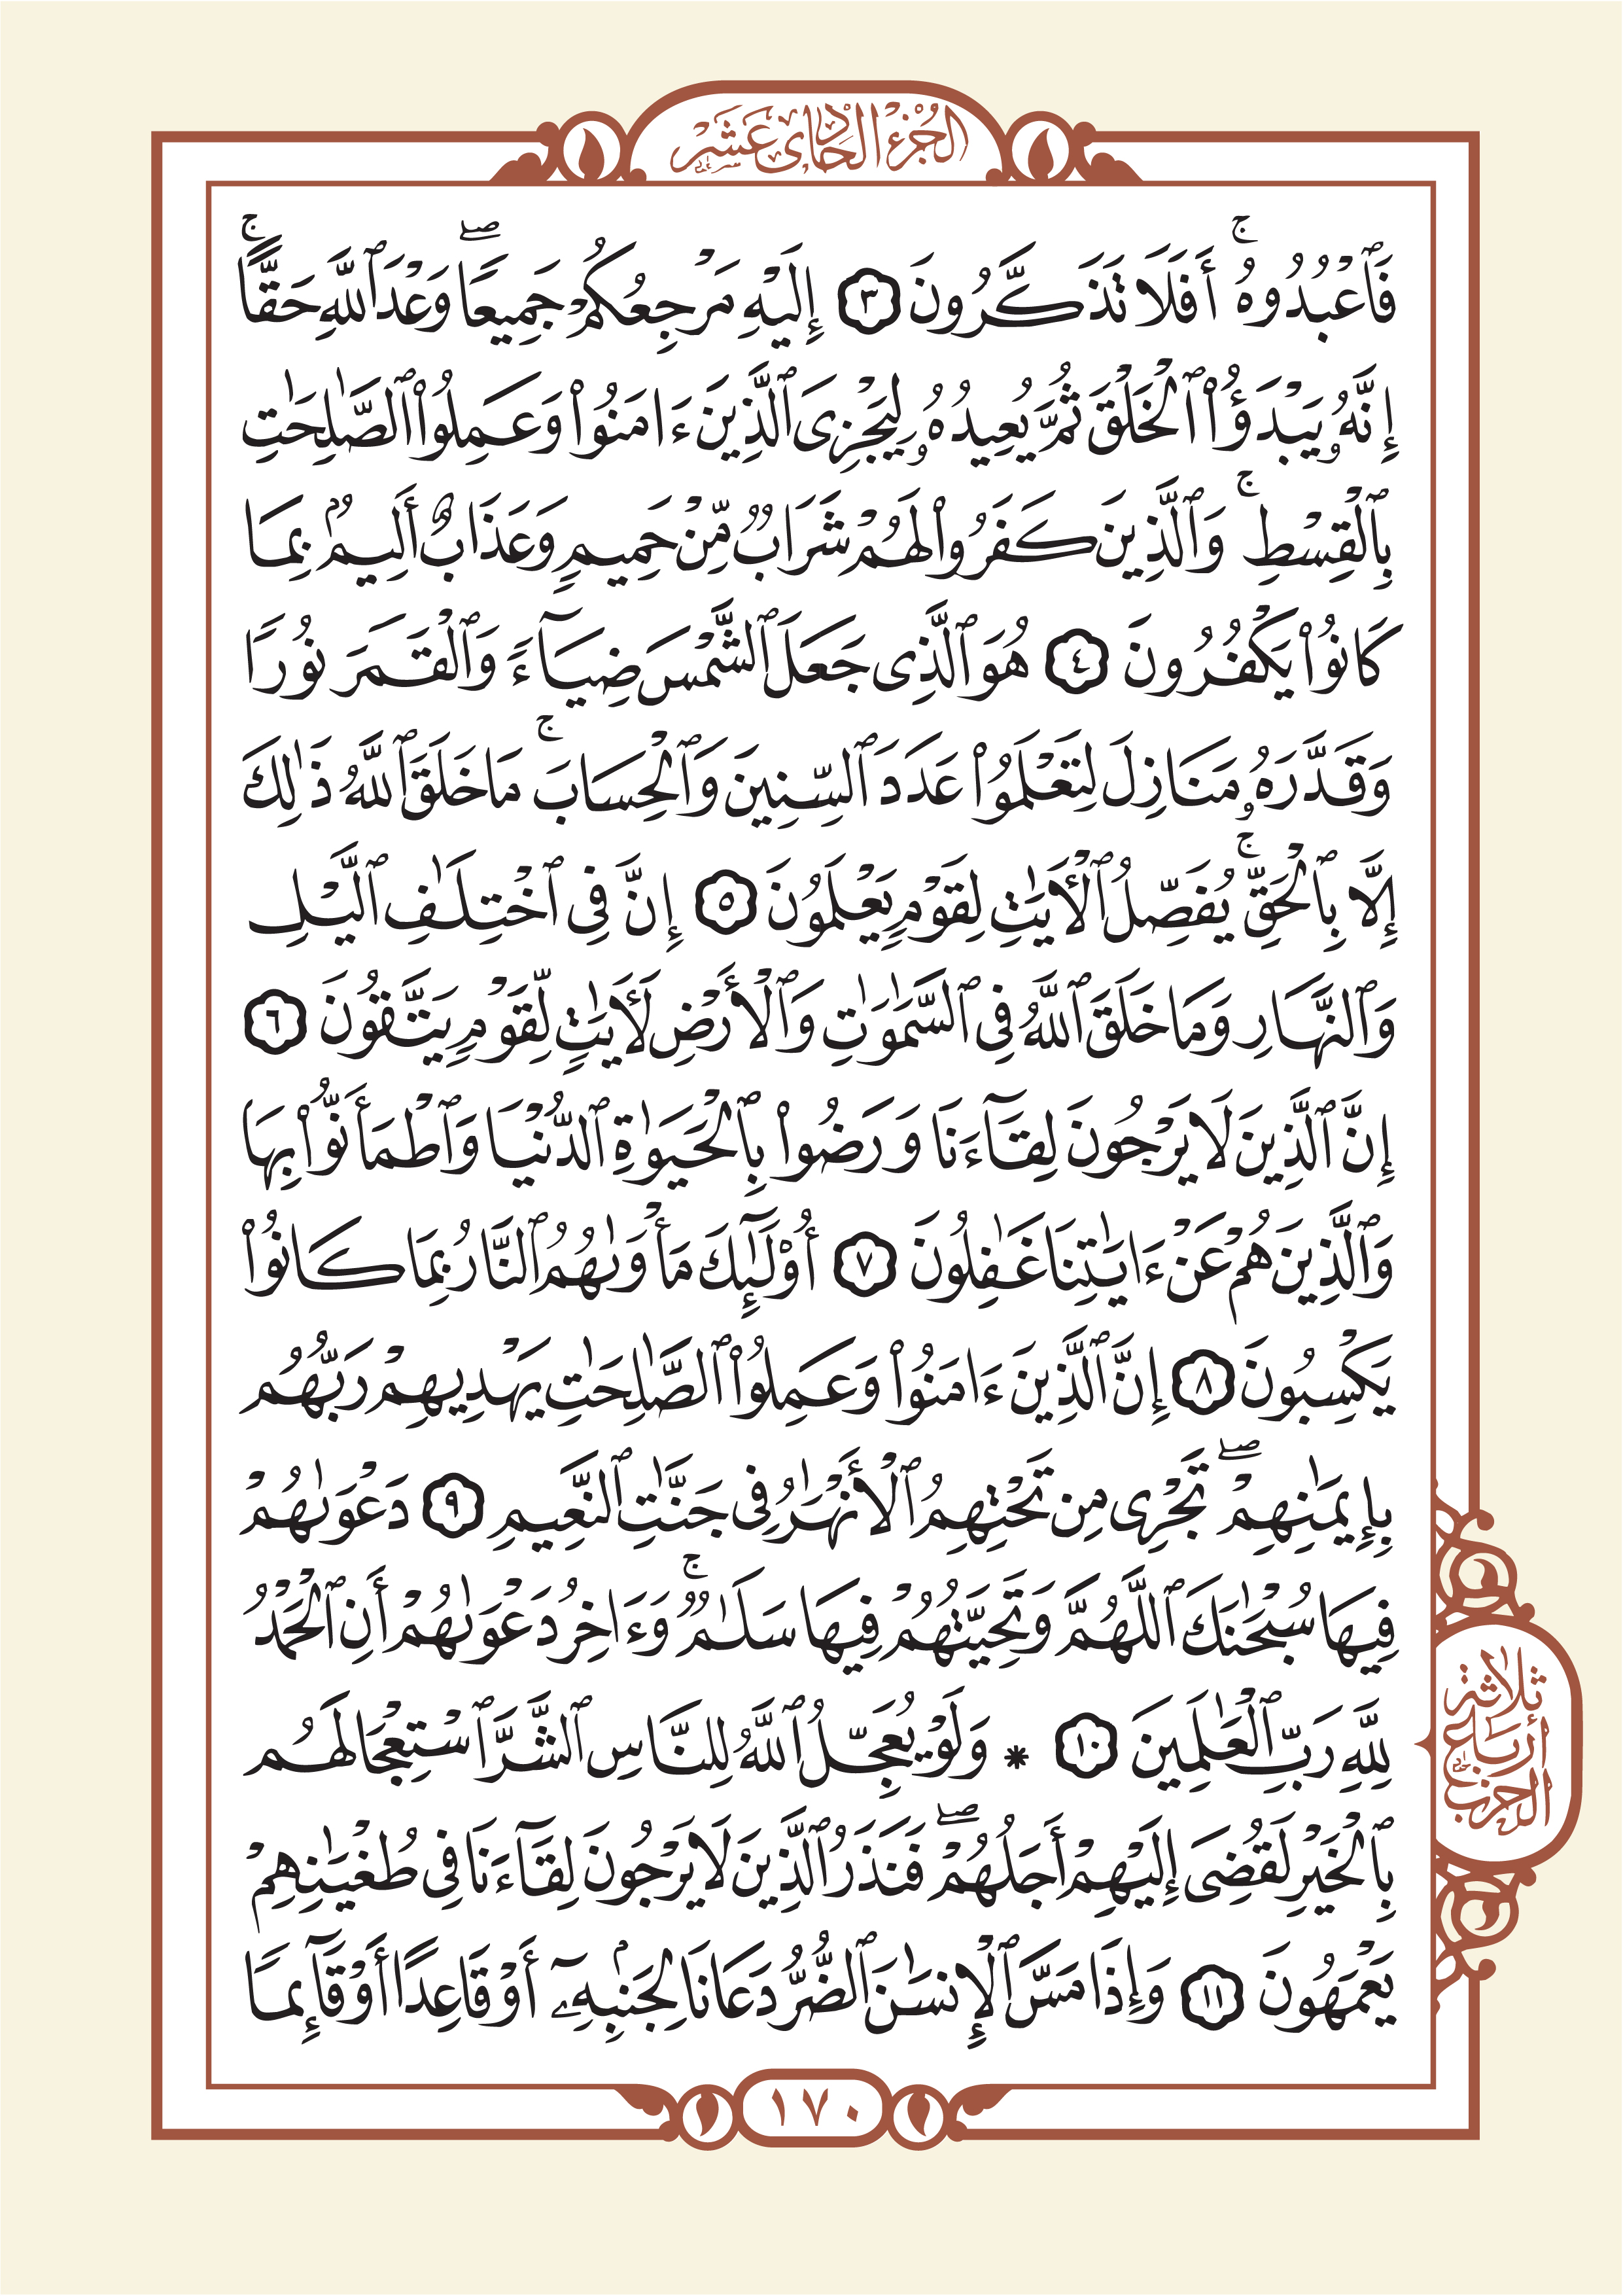 الجزء الحادى عشر
فَٱعۡبُدُوهُۚ أَفَلَا تَذَكَّرُونَ ٣ إِلَيۡهِ مَرۡجِعُكُمۡ جَمِيعٗاۖ وَعۡدَ ٱللَّهِ حَقًّاۚ
إِنَّهُۥ يَبۡدَؤُاْ ٱلۡخَلۡقَ ثُمَّ يُعِيدُهُۥ لِيَجۡزِيَ ٱلَّذِينَ ءَامَنُواْ وَعَمِلُواْ ٱلصَّٰلِحَٰتِ
بِٱلۡقِسۡطِۚ وَٱلَّذِينَ كَفَرُواْ لَهُمۡ شَرَابٞ مِّنۡ حَمِيمٖ وَعَذَابٌ أَلِيمُۢ بِمَا
كَانُواْ يَكۡفُرُونَ ٤ هُوَ ٱلَّذِي جَعَلَ ٱلشَّمۡسَ ضِيَآءٗ وَٱلۡقَمَرَ نُورٗا
وَقَدَّرَهُۥ مَنَازِلَ لِتَعۡلَمُواْ عَدَدَ ٱلسِّنِينَ وَٱلۡحِسَابَۚ مَا خَلَقَ ٱللَّهُ ذَٰلِكَ
إِلَّا بِٱلۡحَقِّۚ يُفَصِّلُ ٱلۡأٓيَٰتِ لِقَوۡمٖ يَعۡلَمُونَ ٥ إِنَّ فِي ٱخۡتِلَٰفِ ٱلَّيۡلِ
وَٱلنَّهَارِ وَمَا خَلَقَ ٱللَّهُ فِي ٱلسَّمَٰوَٰتِ وَٱلۡأَرۡضِ لَأٓيَٰتٖ لِّقَوۡمٖ يَتَّقُونَ ٦
إِنَّ ٱلَّذِينَ لَا يَرۡجُونَ لِقَآءَنَا وَرَضُواْ بِٱلۡحَيَوٰةِ ٱلدُّنۡيَا وَٱطۡمَأَنُّواْ بِهَا
وَٱلَّذِينَ هُمۡ عَنۡ ءَايَٰتِنَا غَٰفِلُونَ ٧ أُوْلَٰٓئِكَ مَأۡوَىٰهُمُ ٱلنَّارُ بِمَا كَانُواْ
يَكۡسِبُونَ ٨ إِنَّ ٱلَّذِينَ ءَامَنُواْ وَعَمِلُواْ ٱلصَّٰلِحَٰتِ يَهۡدِيهِمۡ رَبُّهُم
بِإِيمَٰنِهِمۡۖ تَجۡرِي مِن تَحۡتِهِمُ ٱلۡأَنۡهَٰرُ فِي جَنَّٰتِ ٱلنَّعِيمِ ٩ دَعۡوَىٰهُمۡ
فِيهَا سُبۡحَٰنَكَ ٱللَّهُمَّ وَتَحِيَّتُهُمۡ فِيهَا سَلَٰمٞۚ وَءَاخِرُ دَعۡوَىٰهُمۡ أَنِ ٱلۡحَمۡدُ
لِلَّهِ رَبِّ ٱلۡعَٰلَمِينَ ١٠ * وَلَوۡ يُعَجِّلُ ٱللَّهُ لِلنَّاسِ ٱلشَّرَّ ٱسۡتِعۡجَالَهُم
بِٱلۡخَيۡرِ لَقُضِيَ إِلَيۡهِمۡ أَجَلُهُمۡۖ فَنَذَرُ ٱلَّذِينَ لَا يَرۡجُونَ لِقَآءَنَا فِي طُغۡيَٰنِهِمۡ
يَعۡمَهُونَ ١١ وَإِذَا مَسَّ ٱلۡإِنسَٰنَ ٱلضُّرُّ دَعَانَا لِجَنۢبِهِۦٓ أَوۡ قَاعِدًا أَوۡ قَآئِمٗا
ثلاثة
أرباع
الحزب
١٧٠